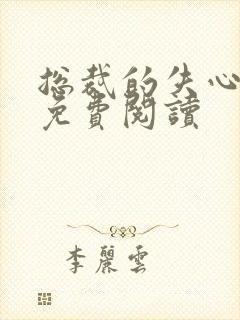 总裁的失心
免費閱讀
李麗雲